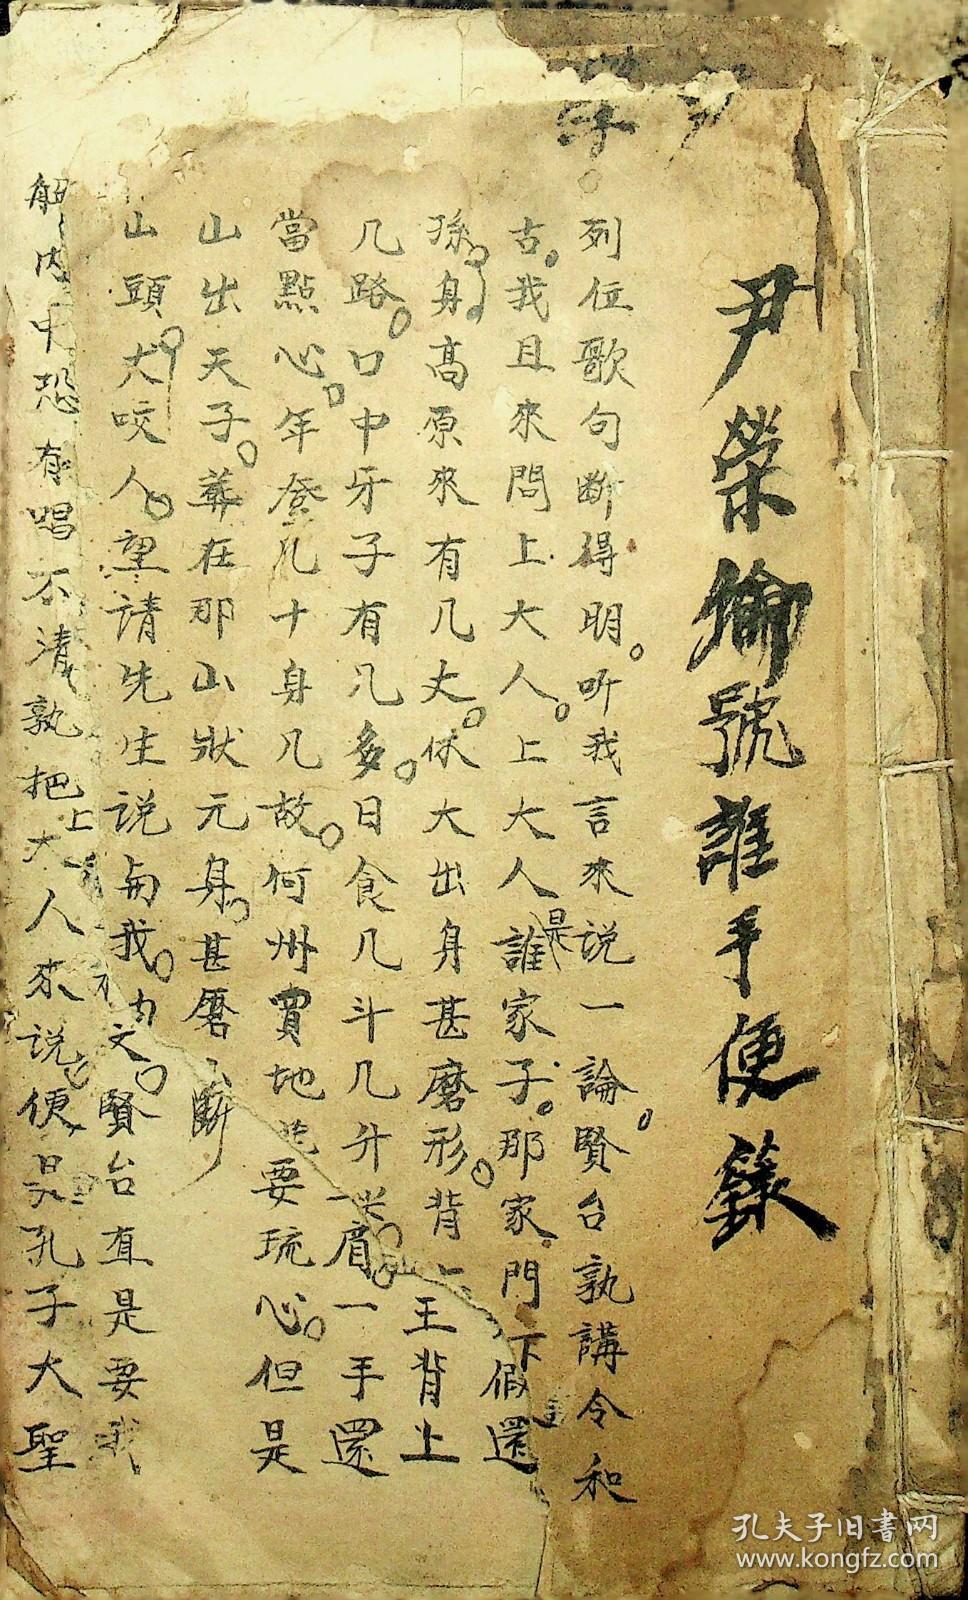 尹榮倫號誰手便錄
列位歌句斷得明。听我言來说一論。賢台孰講令和
古。我且來問上大人。上大人是誰家子。那家門下假還
孫。身高原來有几丈。休大出身甚磨形。背上王背上
几路。口中牙子有几多。日食几斗几升米。眉一手還
當點心。年登几十身几故。何州買地要琉心。但是
山出天子。葬在那山狀元身。甚磨山斷
山頭犬咬人。望請先生说與我。文。賢台直是要我
解内中恐有唱不清孰把上大人來说便是孔子大聖
孔夫子旧書网
www.kongfz.com